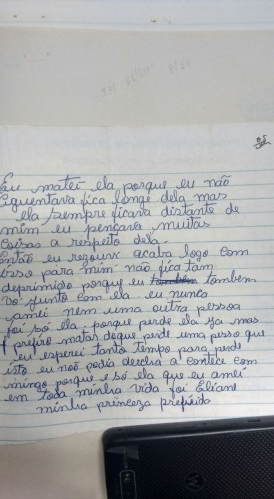 Eu matei ela porque eu não
Eguentava fica longe dela mas
ela sempre ficava distante de
mim eu pençava muitas
Coisas a respeito dela.
Então eu rezouvi acaba logo com
isso para mim não fica tam
deprimido porque eu tambem
vo junto com ela eu nunca
amei nem uma outra pessoa
foi só ela, porque perde ela ja mas
prefiro matar doque perde uma pesso que
eu esperei tanto tempo para perde
isto eu noõ podia deicha a contece com
mingo porque e só ela que eu amei
em toda minha vida foi Eliane
minha princeza preferida